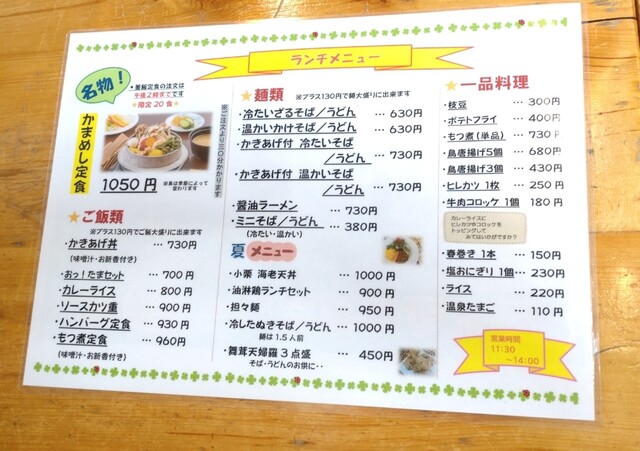 ランチメニュー
名物!
・釜飯定食の注文は
午後2時までです
★限定20食★
かまめし定食
※ご注文より三〇分かかります
1050円
※具は季節によって
変わります
★ご飯類
※プラス130円でご飯大盛りに出来ます
・かきあげ丼 … 730円
(味噌汁・お新香付き)
・おっ!たまセット … 700円
・カレーライス … 800円
・ソースカツ重 … 900円
・ハンバーグ定食 … 930円
・もつ煮定食 … 960円
(味噌汁・お新香付き)
★麺類
※プラス130円で麺大盛りに出来ます
・冷たいざるそば/うどん … 630円
・温かいかけそば/うどん … 630円
・かきあげ付 冷たいそば
/うどん … 730円
・かきあげ付 温かいそば
/うどん … 730円
・醤油ラーメン … 730円
・ミニそば/うどん … 380円
(冷たい・温かい)
夏メニュー
・小栗 海老天丼 … 1000円
・油淋鶏ランチセット … 900円
・担々麺 … 950円
・冷したぬきそば/うどん … 1000円
麺は1.5人前
・舞茸天婦羅3点盛 … 450円
そば・うどんのお供に‥
★一品料理
・枝豆 … 300円
・ポテトフライ … 400円
・もつ煮(単品) … 730円
・鳥唐揚げ5個 … 680円
・鳥唐揚げ3個 … 430円
・ヒレカツ 1枚 … 250円
・牛肉コロッケ 1個 … 180円
カレーライスに
ヒレカツやコロッケを
トッピングして
みてはいかがですか?
・春巻き 1本 … 150円
・塩おにぎり 1個 … 230円
・ライス … 220円
・温泉たまご … 110円
営業時間
11:30
~14:00